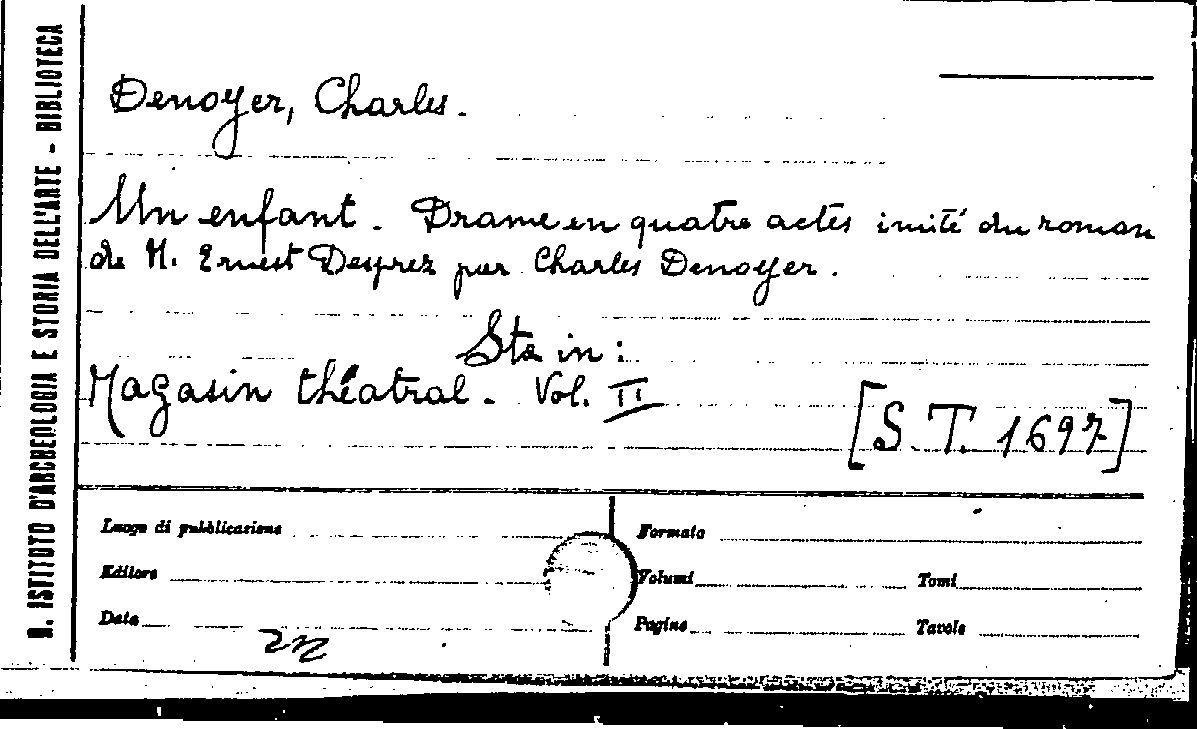 R. ISTITUTO D'ARCHEOLOGIA E STORIA DELL'ARTE - BIBLIOTECA
Denoyer, Charles.
Un enfant. Drame en quatre actes imité du roman
de M. Ernest Desprez par Charles Denoyer.
Sta in:
Magasin théatral. Vol. II
[S.T. 1697]
Luogo di pubblicazione
Formato
Editore
Volumi
Tomi
Data
Pagine
Tavole